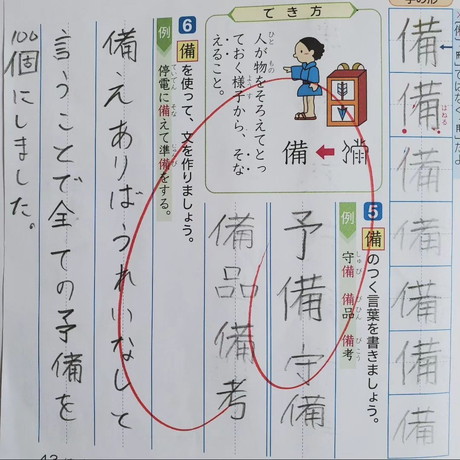 備
備
はねる
備
備
備
備
備
でき方
人が物をそろえてとっ
ておく様子から、そな
えること。
備
5 備のつく言葉を書きましょう。
例 守備 備品 備考
予備 守備
備品 備考
6 備を使って、文を作りましょう。
例 停電に備えて準備をする。
備えありばうれいなしと
言うことで全ての予備を
100個にしました。